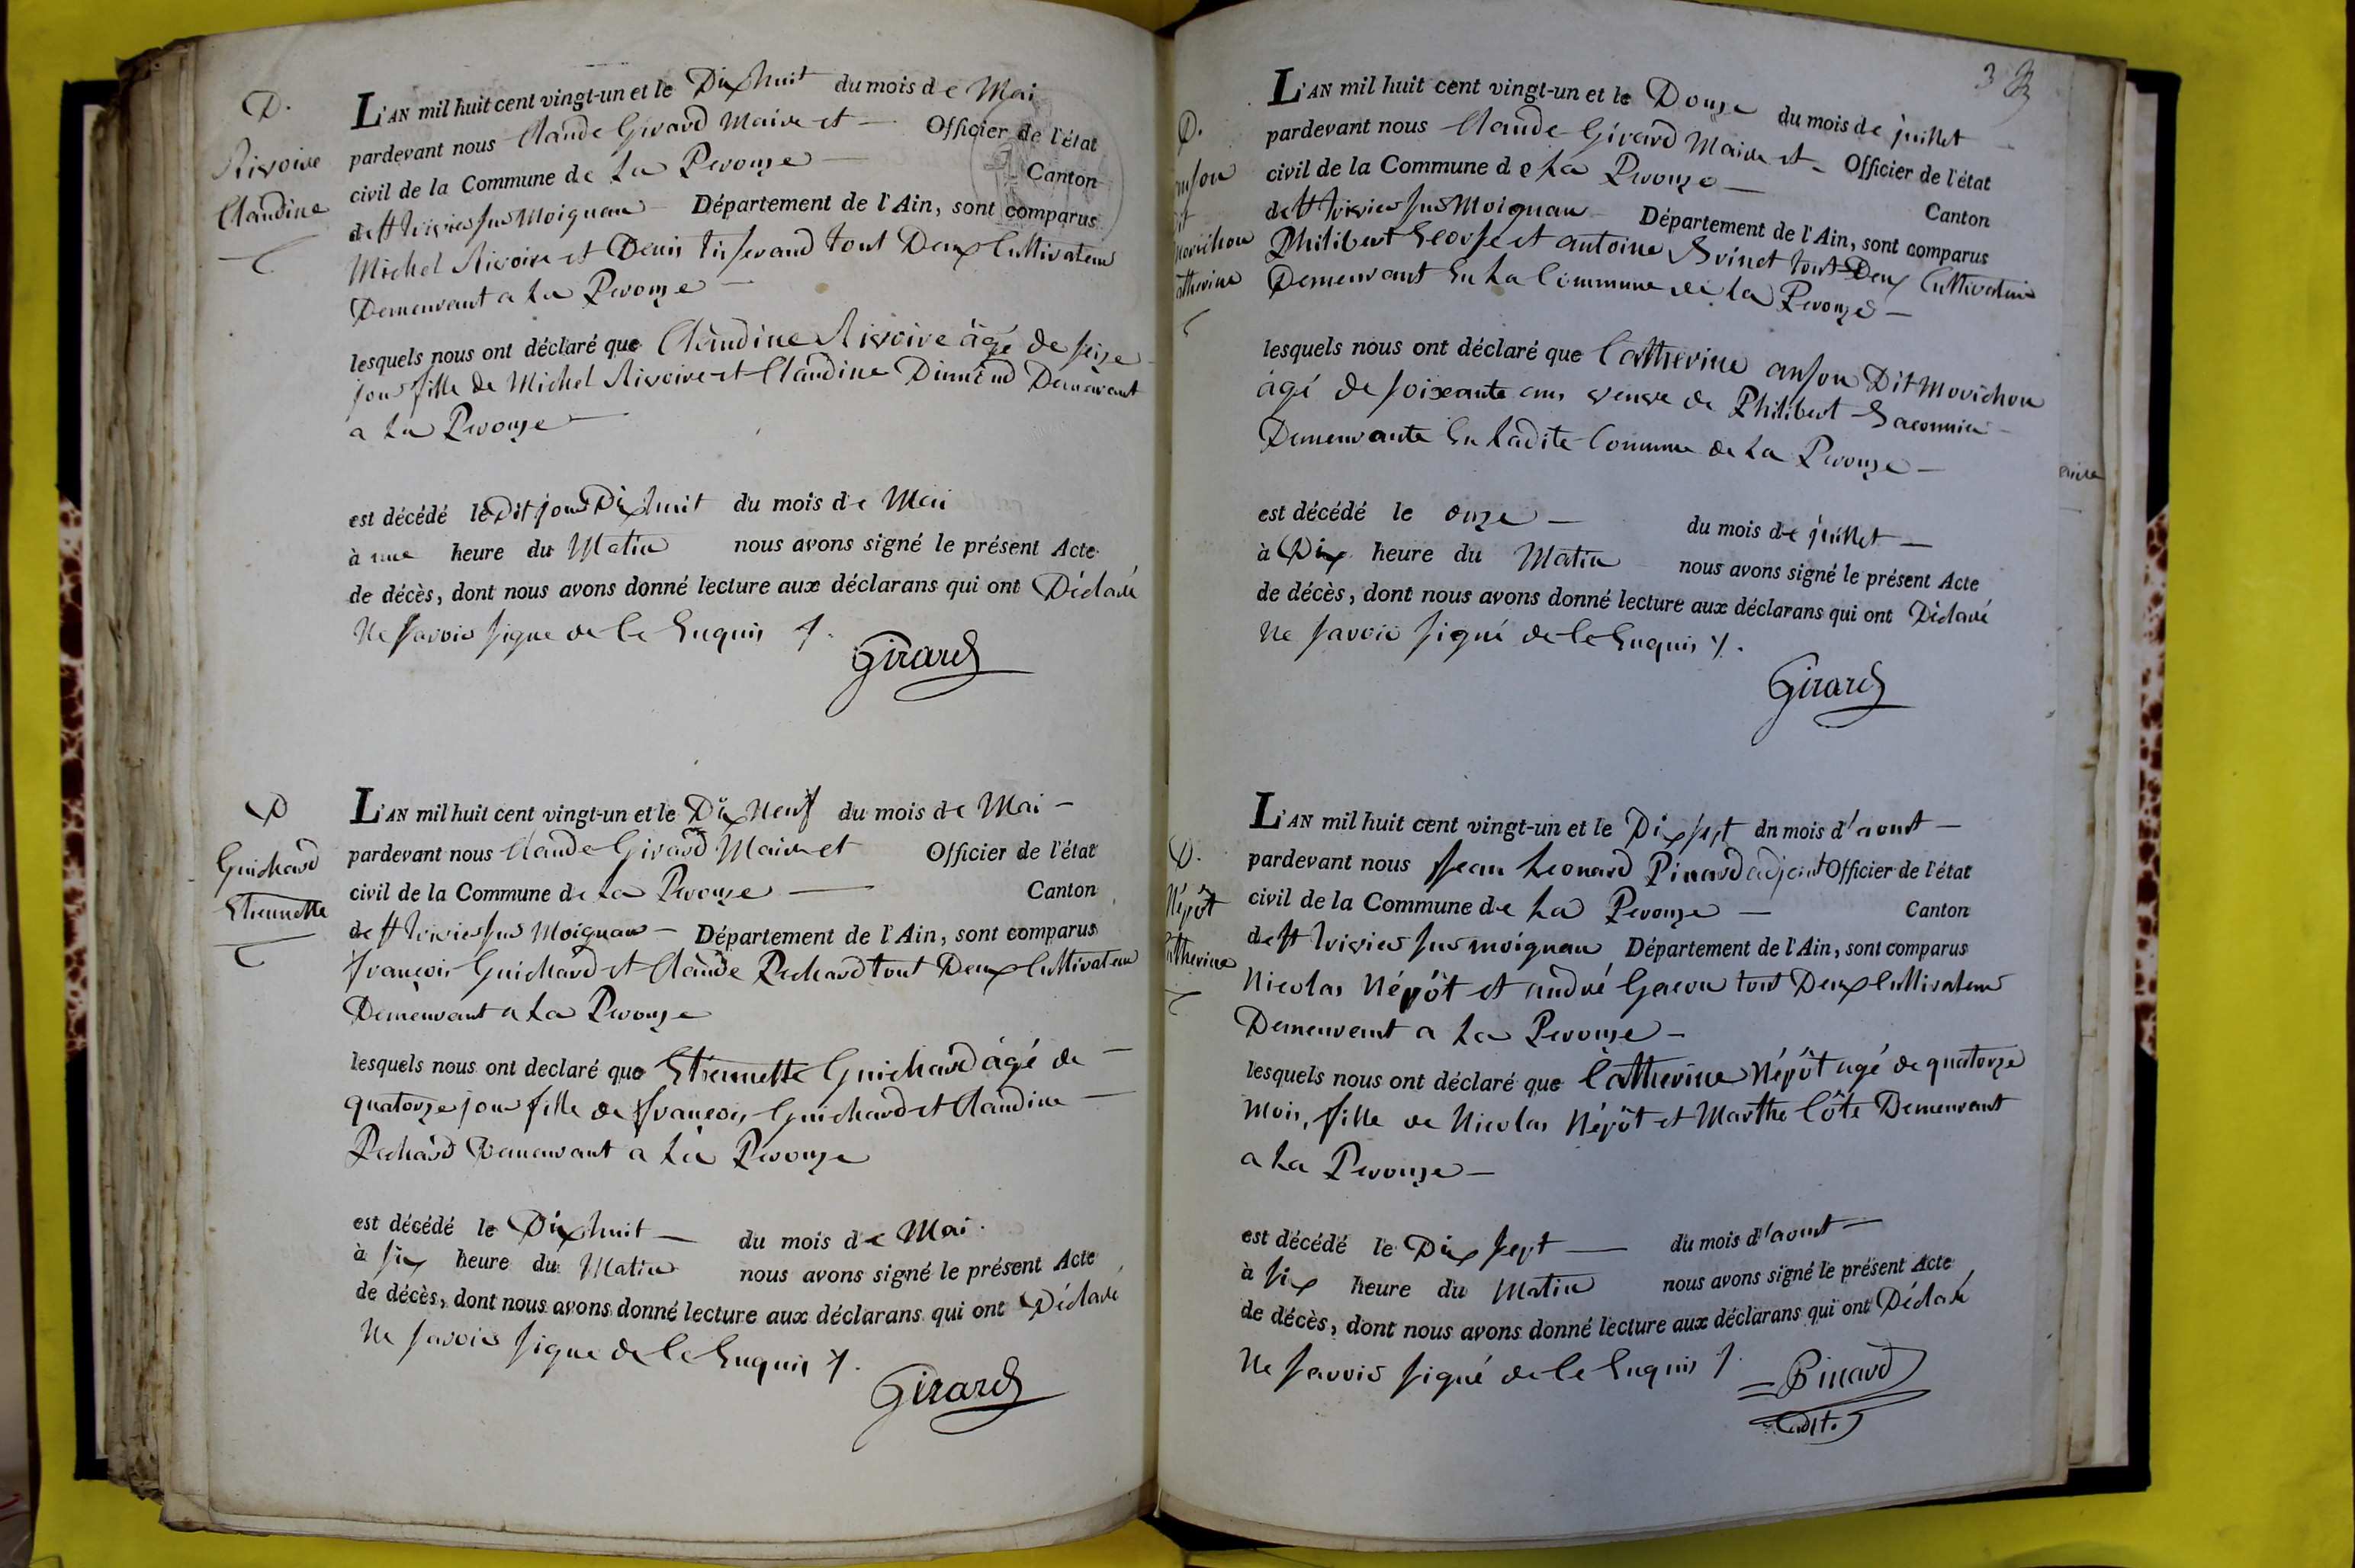 D.
Rivoire
Claudine
L'AN mil huit cent vingt-un et le Dix huit du mois de Mai
pardevant nous Claude Girard Maire et — Officier de l'état
civil de la Commune de La Perouze — Canton
de St trivier sur Moignan — Département de l'Ain, sont comparus
Michel Rivoire et Denis tisserand tout Deux Cultivateur
Demeurant a La Perouze —
lesquels nous ont déclaré que Claudine Rivoire âgé de seize
jour fille de Michel Rivoire et Claudine Demeurant
a La Perouze —
est décédé le Dit jour Dix huit du mois de Mai
à une heure du Matin nous avons signé le présent Acte
de décès, dont nous avons donné lecture aux déclarans qui ont Déclaré
Ne savoir signe de ce Enquis
Girard
D
Guichard
Etiennette
L'AN mil huit cent vingt-un et le Dix Neuf du mois de Mai —
pardevant nous Claude Girard Maire et Officier de l'état
civil de la Commune de La Perouze — Canton
de St trivier sur Moignan — Département de l'Ain, sont comparus
françois Guichard et Claude Pechard tout Deux Cultivateur
Demeurant a La Perouze
lesquels nous ont declaré que Etiennette Guichard âgé de —
quatorze jour fille de françois Guichard et Claudine —
Pechard Demeurant a La Perouze
est décédé le Dix huit — du mois de Mai
à six heure du Matin nous avons signé le présent Acte
de décès, dont nous avons donné lecture aux déclarans qui ont Déclaré
Ne savoir signe de ce Enquis
Girard
3
D.
anson
dit
Morichon
atherine
L'AN mil huit cent vingt-un et le Douze du mois de juillet
pardevant nous Claude Girard Maire et — Officier de l'état
civil de la Commune de La Perouze — Canton
de St trivier sur Moignan — Département de l'Ain, sont comparus
Philibert George et antoine Brinet tout Deux Cultivateur
Demeurant En La Commune de La Perouze —
lesquels nous ont déclaré que Catherine anson Dit Morichon
âgé de soixante ans veuve de Philibert
Demeurante En Ladite Commune de La Perouze —
est décédé le onze — du mois de juillet —
à Dix heure du Matin nous avons signé le présent Acte
de décès, dont nous avons donné lecture aux déclarans qui ont Déclaré
Ne savoir signé de ce Enquis
Girard
D.
Népôt
atherine
L'AN mil huit cent vingt-un et le Dix sept du mois d'aoust —
pardevant nous Jean Leonard Pinard adjoint Officier de l'état
civil de la Commune de La Perouze — Canton
de St trivier sur moignan Département de l'Ain, sont comparus
Nicolas Népôt et andré Gacon tout Deux Cultivateur
Demeurant a La Perouze —
lesquels nous ont déclaré que Catherine Népôt agé de quatorze
Mois, fille de Nicolas Népôt et Marthe Côte Demeurant
a La Perouze —
est décédé le Dix sept — du mois d'aoust —
à six heure du Matin nous avons signé le présent Acte
de décès, dont nous avons donné lecture aux déclarans qui ont Déclaré
Ne savoir signé de ce Enquis
Pinard
adjt.